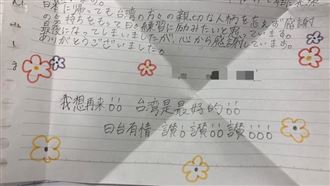 日本に帰っても台湾の方々の親切な人柄を忘れず感謝
の気持ちをもって日々練習に励みたいと思
最後になってしまいましたが、心から感謝しています。
ありがとうございました。
我想再来!! 台湾是最好的!!
日台有情 讃! 讃!! 讃!!!